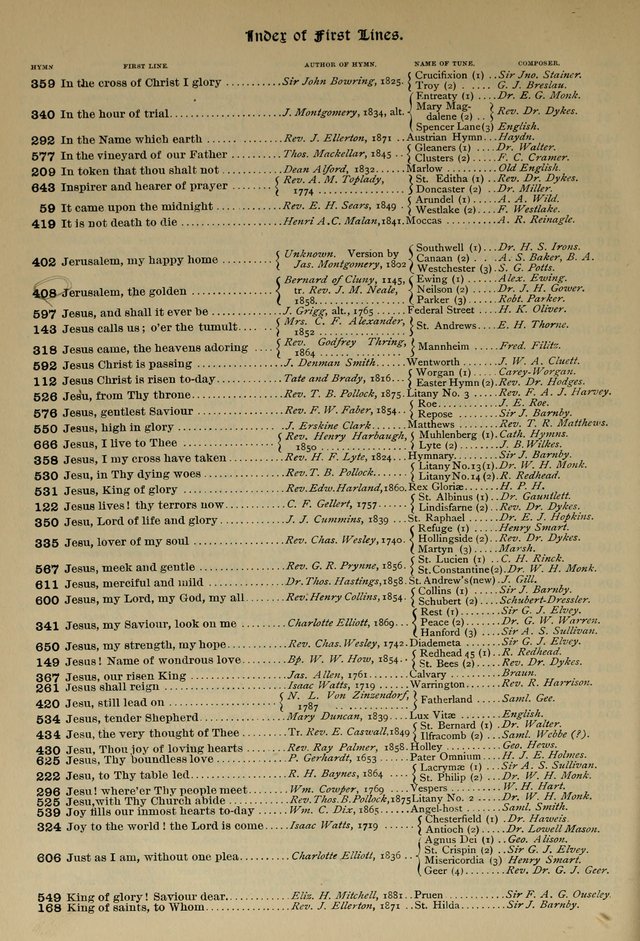 Index of First Lines.
HYMN FIRST LINE. AUTHOR OF HYMN. NAME OF TUNE. COMPOSER.
359 In the cross of Christ I glory .......... Sir John Bowring, 1825. { Crucifixion (1) .. Sir Jno. Stainer.
Troy (2) ...... G. J. Breslau.
340 In the hour of trial.................. J. Montgomery, 1834, alt. { Entreaty (1) .... Dr. E. G. Monk.
Mary Mag-
dalene (2) .. } Rev. Dr. Dykes.
Spencer Lane (3) English.
292 In the Name which earth ............ Rev. J. Ellerton, 1871 .. Austrian Hymn.... Haydn.
577 In the vineyard of our Father ........ Thos. Mackellar, 1845 .. { Gleaners (1) .... Dr. Walter.
Clusters (2) .... F. C. Cramer.
209 In token that thou shalt not .......... Dean Alford, 1832...... Marlow .......... Old English.
643 Inspirer and hearer of prayer ........ { Rev. A. M. Toplady, 1774 .............. { St. Editha (1) .. Rev. Dr. Dykes.
Doncaster (2) .. Dr. Miller.
59 It came upon the midnight .......... Rev. E. H. Sears, 1849 . { Arundel (1) .... A. A. Wild.
Westlake (2) .... F. Westlake.
419 It is not death to die ................ Henri A. C. Malan, 1841. Moccas .......... A. R. Reinagle.
402 Jerusalem, my happy home .......... { Unknown. Version by Jas. Montgomery, 1802 { Southwell (1) .... Dr. H. S. Irons.
Canaan (2) .. . A. S. Baker, B. A.
Westchester (3) . S. G. Potts.
408 Jerusalem, the golden .............. { Bernard of Cluny, 1145, tr. Rev. J. M. Neale, 1858.............. { Ewing (1) ...... Alex. Ewing.
Neilson (2) ...... Dr. J. H. Gower.
Parker (3) ...... Robt. Parker.
597 Jesus, and shall it ever be .......... J. Grigg, alt., 1765 .... Federal Street .... H. K. Oliver.
143 Jesus calls us; o'er the tumult...... { Mrs. C. F. Alexander, 1852 .............. } St. Andrews.... E. H. Thorne.
318 Jesus came, the heavens adoring .... { Rev. Godfrey Thring, 1864 .............. } Mannheim .... Fred. Filitz.
592 Jesus Christ is passing .............. J. Denman Smith...... Wentworth ...... J. W. A. Cluett.
112 Jesus Christ is risen to-day.......... Tate and Brady, 1816... { Worgan (1) .... Carey-Worgan.
Easter Hymn (2). Rev. Dr. Hodges.
526 Jesu, from Thy throne .............. Rev. T. B. Pollock, 1875. Litany No. 3 .... Rev. F. A. J. Harvey.
576 Jesus, gentlest Saviour ............ Rev. F. W. Faber, 1854.. { Roe............ J. E. Roe.
Repose ........ Sir J. Barnby.
550 Jesus, high in glory ................ J. Erskine Clark ...... Matthews ........ Rev. T. R. Matthews.
666 Jesus, I live to Thee .............. { Rev. Henry Harbaugh, 1850 .............. { Muhlenberg (1) . Cath. Hymns.
Lyte (2) ........ J. B. Wilkes.
358 Jesus, I my cross have taken........ Rev. H. F. Lyte, 1824... Hymnary........ Sir J. Barnby.
530 Jesu, in Thy dying woes ............ Rev. T. B. Pollock...... { Litany No. 13 (1). Dr. W. H. Monk.
Litany No. 14 (2). R. Redhead.
531 Jesus, King of glory .............. Rev. Edw. Harland, 1860. Rex Gloriæ ...... H. P. H.
122 Jesus lives! thy terrors now........ C. F. Gellert, 1757...... { St. Albinus (1) .. Dr. Gauntlett.
Lindisfarne (2) .. Rev. Dr. Dykes.
350 Jesu, Lord of life and glory ........ J. J. Cummins, 1839 .... St. Raphael ...... Dr. E. J. Hopkins.
335 Jesu, lover of my soul .............. Rev. Chas. Wesley, 1740. { Refuge (1) ...... Henry Smart.
Hollingside (2) .. Rev. Dr. Dykes.
Martyn (3) ...... Marsh.
567 Jesus, meek and gentle ............ Rev. G. R. Prynne, 1856. { St. Lucien (1) .. C. H. Rinck.
St. Constantine (2). Dr. W. H. Monk.
611 Jesus, merciful and mild .......... Dr. Thos. Hastings, 1858. St. Andrew's (new) . J. Gill.
600 Jesus, my Lord, my God, my all.... Rev. Henry Collins, 1854. { Collins (1) ...... Sir J. Barnby.
Schubert (2) .... Schubert-Dressler.
341 Jesus, my Saviour, look on me ...... Charlotte Elliott, 1869.. { Rest (1) ........ Sir G. J. Elvey.
Peace (2) ...... Dr. G. W. Warren.
Hanford (3) .... Sir A. S. Sullivan.
650 Jesus, my strength, my hope........ Rev. Chas. Wesley, 1742. Diademeta ...... Sir G. J. Elvey.
149 Jesus! Name of wondrous love...... Bp. W. W. How, 1854.. { Redhead 45 (1) .. R. Redhead.
St. Bees (2) .... Rev. Dr. Dykes.
367 Jesus, our risen King .............. Jas. Allen, 1761........ Calvary ........ Braun.
261 Jesus shall reign .................. Isaac Watts, 1719 ...... Warrington...... Rev. R. Harrison.
420 Jesu, still lead on .................. { N. L. Von Zinzendorf, 1787 .............. } Fatherland .... Saml. Gee.
534 Jesus, tender Shepherd............ Mary Duncan, 1839.... Lux Vitæ ........ English.
434 Jesu, the very thought of Thee .... Tr. Rev. E. Caswall, 1849 { St. Bernard (1) .. Dr. Walter.
Ilfracomb (2) .... Saml. Webbe (?).
430 Jesu, Thou joy of loving hearts .... Rev. Ray Palmer, 1858. Holley .......... Geo. Hews.
625 Jesus, Thy boundless love .......... P. Gerhardt, 1653 ...... Pater Omnium .... H. J. E. Holmes.
222 Jesu, to Thy table led.............. R. H. Baynes, 1864 .... { Lacrymæ (1) .... Sir A. S. Sullivan.
St. Philip (2) .... Dr. W. H. Monk.
296 Jesu! where'er Thy people meet.... Wm. Cowper, 1769 .... Vespers ........ W. H. Hart.
525 Jesu, with Thy Church abide ...... Rev. Thos. B. Pollock, 1875 Litany No. 2 .... Dr. W. H. Monk.
539 Joy fills our inmost hearts to-day .... Wm. C. Dix, 1865...... Angel-host ...... Saml. Smith.
324 Joy to the world! the Lord is come.. Isaac Watts, 1719 ...... { Chesterfield (1) .. Dr. Haweis.
Antioch (2) .... Dr. Lowell Mason.
606 Just as I am, without one plea...... Charlotte Elliott, 1836 .. { Agnus Dei (1) .. Geo. Alison.
St. Crispin (2) .. Sir G. J. Elvey.
Misericordia (3) Henry Smart.
Geer (4)........ Rev. Dr. G. J. Geer.
549 King of glory! Saviour dear........ Eliz. H. Mitchell, 1881.. Pruen .......... Sir F. A. G. Ouseley.
168 King of saints, to Whom............ Rev. J. Ellerton, 1871 .. St. Hilda ........ Sir J. Barnby.